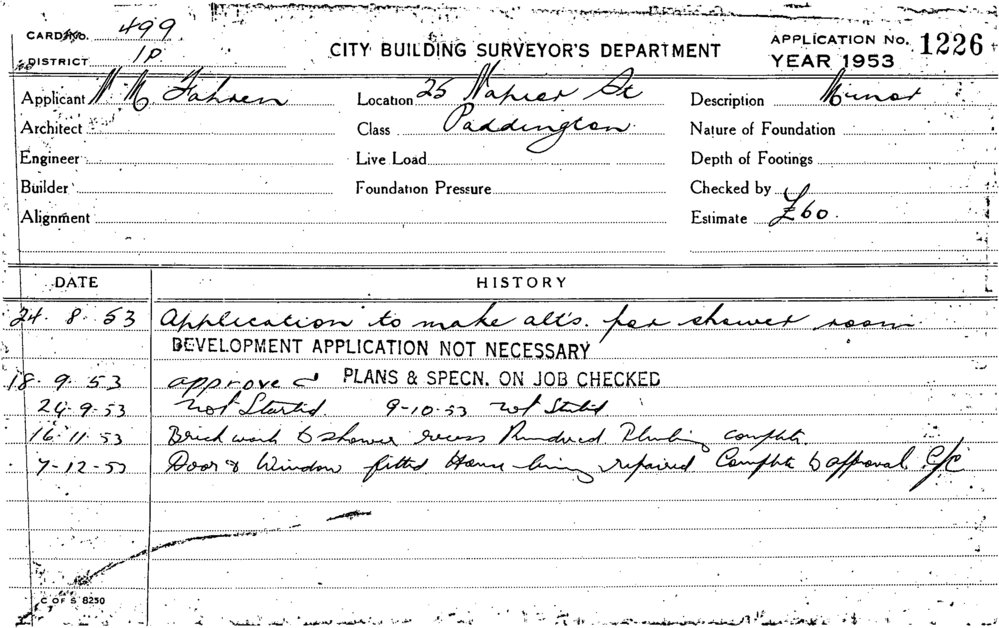 CARD No. 499
DISTRICT 1D
CITY BUILDING SURVEYOR'S DEPARTMENT
APPLICATION No. 1226
YEAR 1953
Applicant
Location 25 Napier St
Description Minor
Architect
Class Paddington
Nature of Foundation
Engineer
Live Load
Depth of Footings
Builder
Foundation Pressure
Checked by
Alignment
Estimate £60
DATE HISTORY
24. 8. 53 Application to make alt's. for shower room
DEVELOPMENT APPLICATION NOT NECESSARY
18. 9. 53 approved PLANS & SPECN. ON JOB CHECKED
24. 9. 53 Not Started. 9-10-53 Not Started
16. 11. 53 Brick work to shower recess Rendered. Plumbing complete
7-12-53 Door & Window fitted House being repaired Complete to approval
C OF S 8250